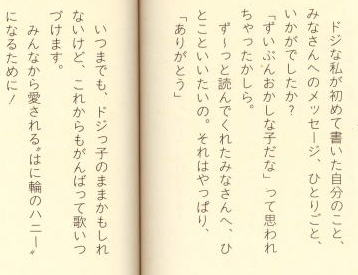 ドジな私が初めて書いた自分のこと、
みなさんへのメッセージ、ひとりごと、
いかがでしたか?
「ずいぶんおかしな子だな」って思われ
ちゃったかしら。
ず〜っと読んでくれたみなさんへ、ひ
とこといいたいの。それはやっぱり、
「ありがとう」
いつまでも、ドジっ子のままかもしれ
ないけど、これからもがんばって歌いつ
づけます。
みんなから愛される〝はに輪のハニー〟
になるために!